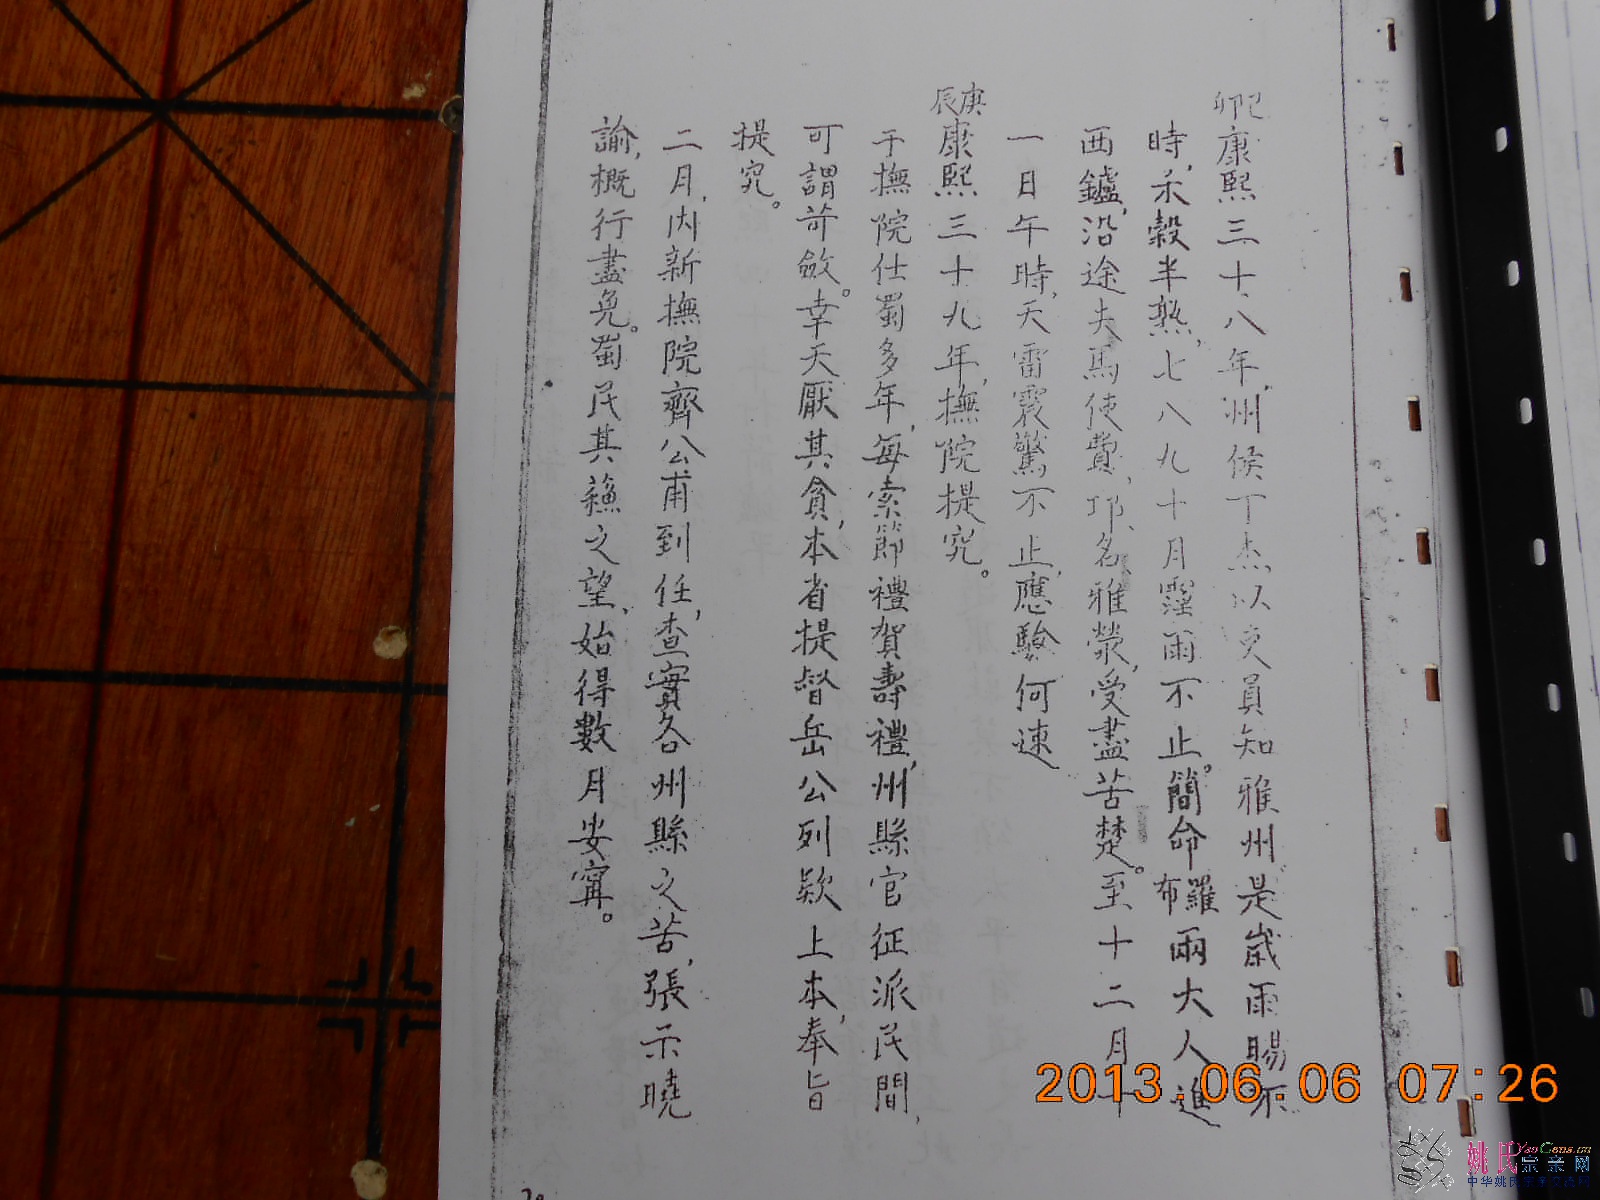 己卯康熙三十八年,州侯丁杰以吏員知雅州是歲雨暘不
時,禾穀半熟,七八九十月霪雨不止。簡命布羅兩大人進
西鑪,沿途夫馬使費,邛、名、雅、滎,受盡苦楚。至十二月十
一日午時,天雷震驚不止,應驗何速
庚辰康熙三十九年,撫院提究。
于撫院仕蜀多年,每索節禮賀壽禮,州縣官征派民間,
可謂苛斂。幸天厭其貪,本省提督岳公列欵上本,奉旨
提究。
二月,內新撫院齊公甫到任,查實各州縣之苦,張示曉
諭,概行盡免。蜀民其蘓之望,始得數月安寗。
2013.06.06 07:26
姚氏宗亲网
YaoGens.cn